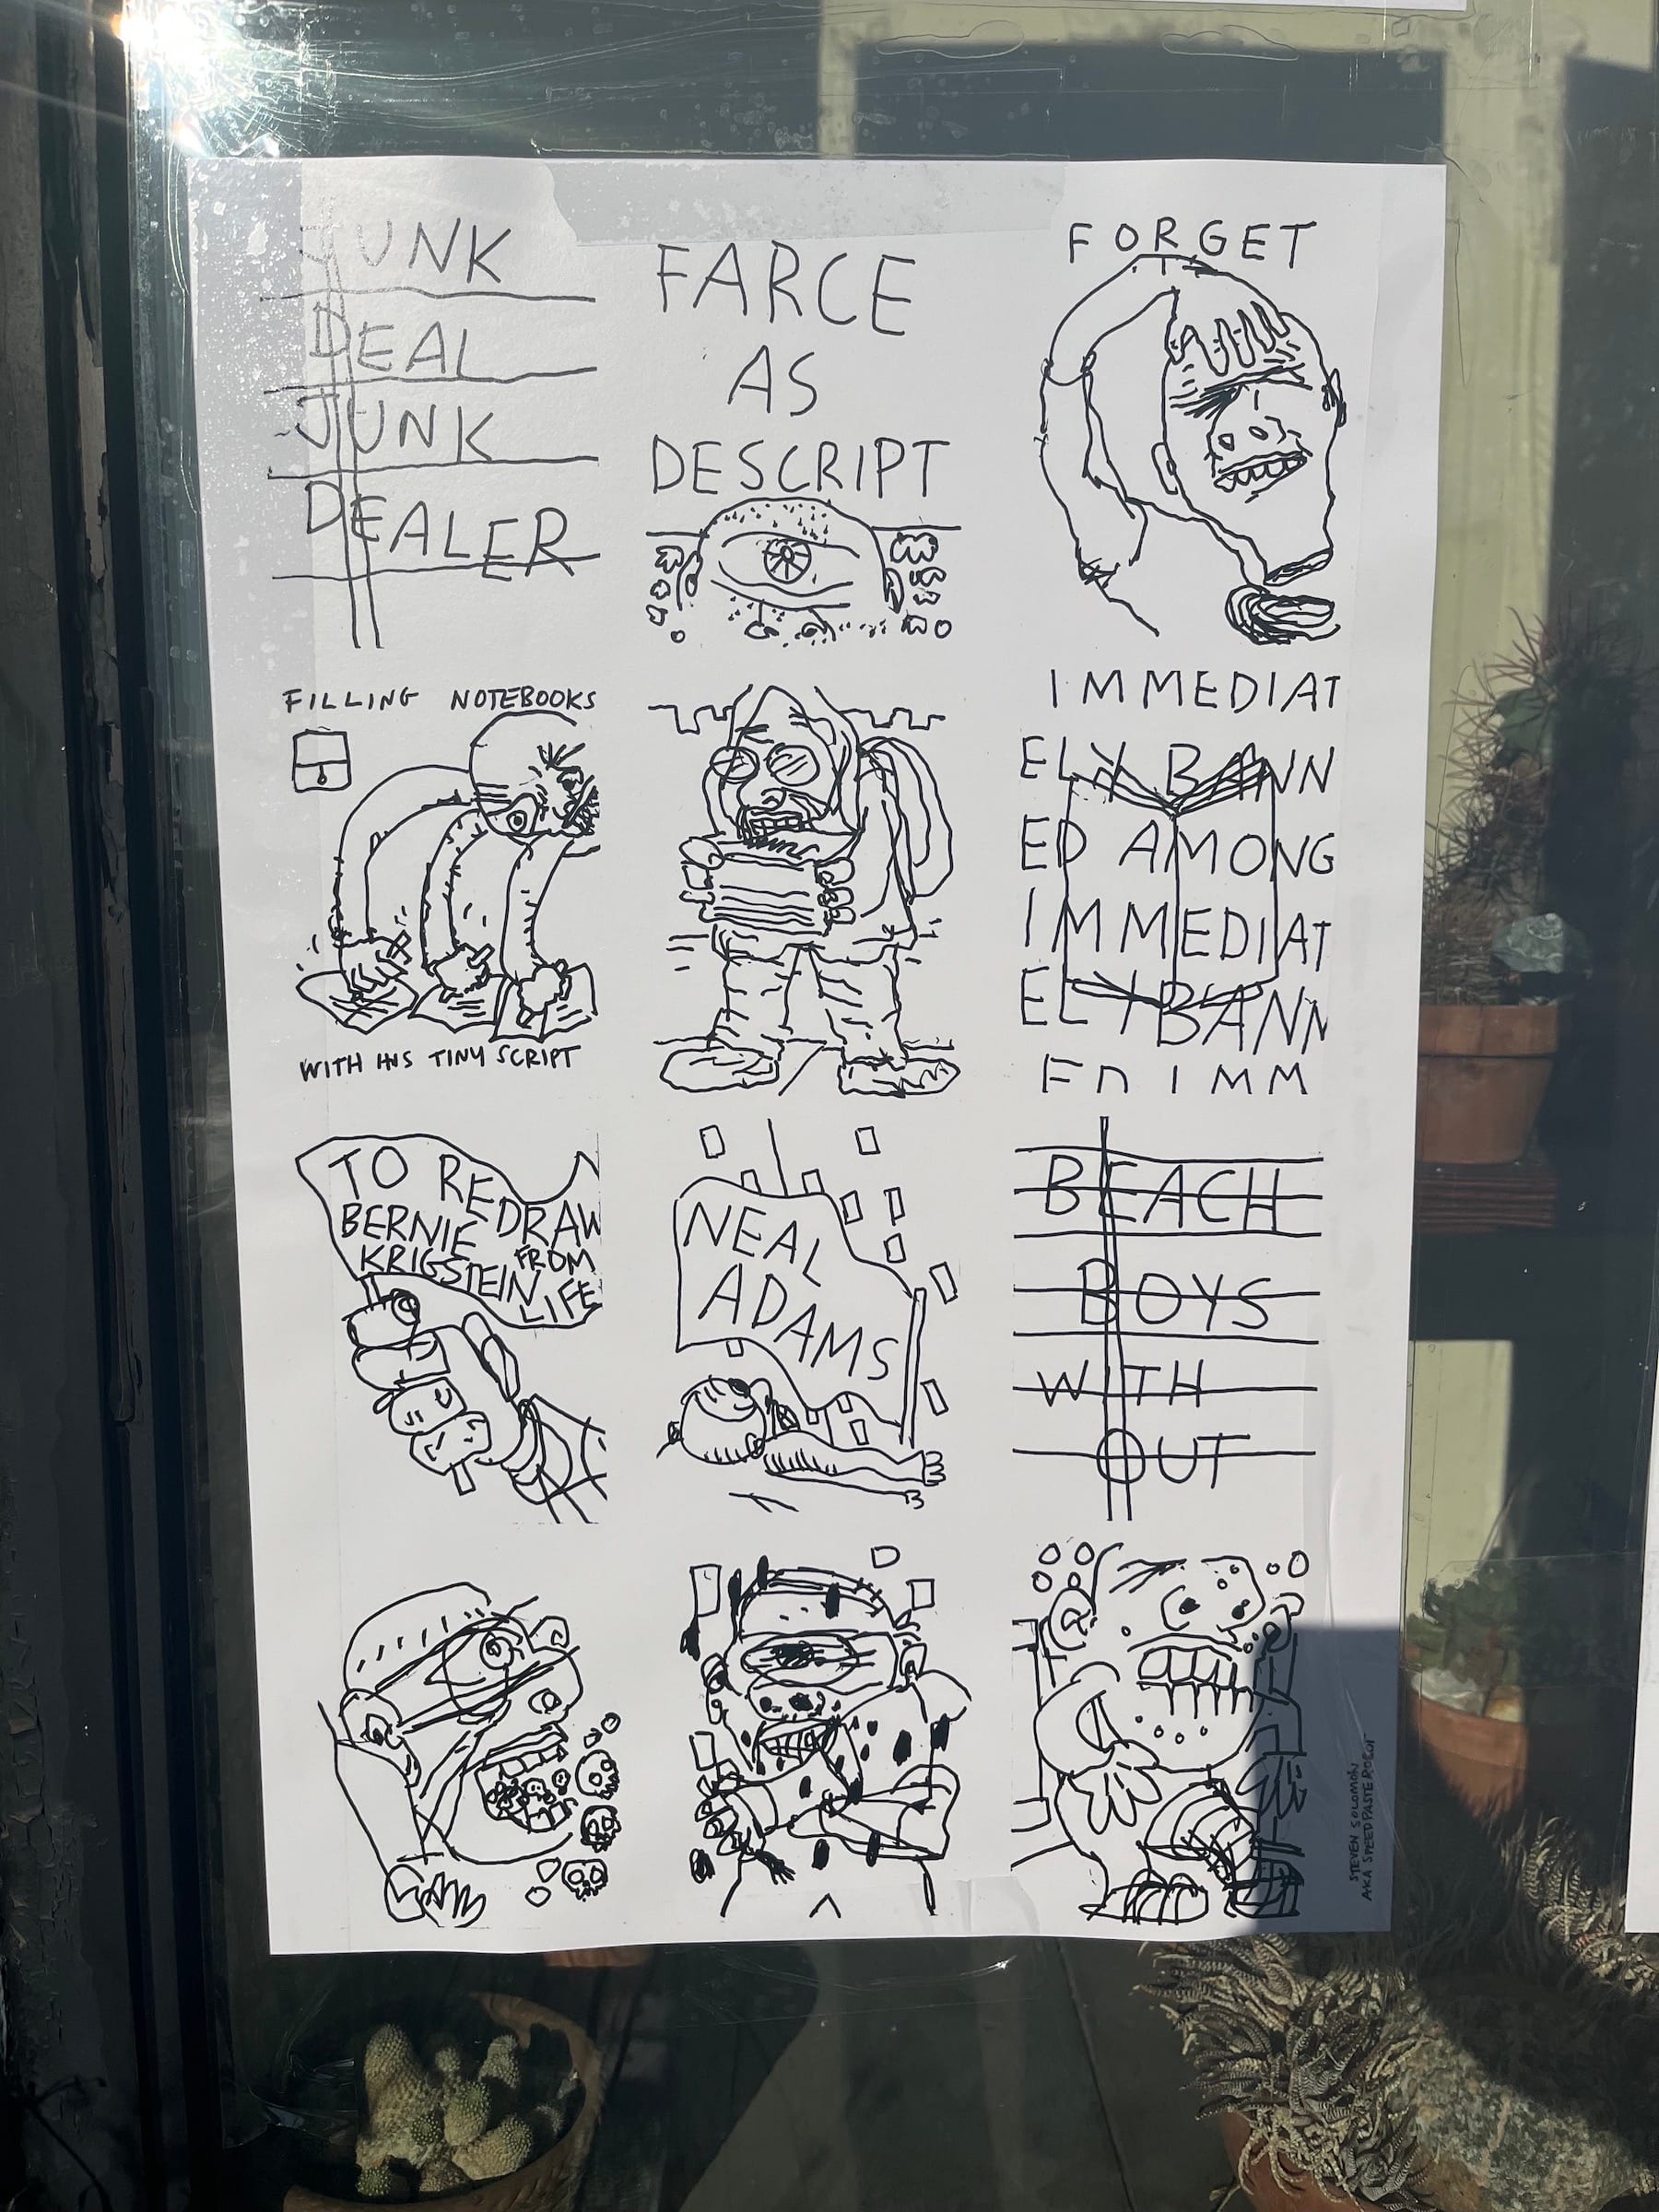 JUNK
DEAL
JUNK
DEALER
FARCE
AS
DESCRIPT
FORGET
FILLING NOTEBOOKS
WITH HIS TINY SCRIPT
IMMEDIAT
ELY BANN
ED AMONG
IMMEDIAT
ELY BANN
ED IMM
TO REDRAW
BERNIE
KRIGSTEIN FROM
LIFE
NEAL
ADAMS
BEACH
BOYS
WITH
OUT
STEVEN SOLOMON
AKA SPEEDPASTEROBOT